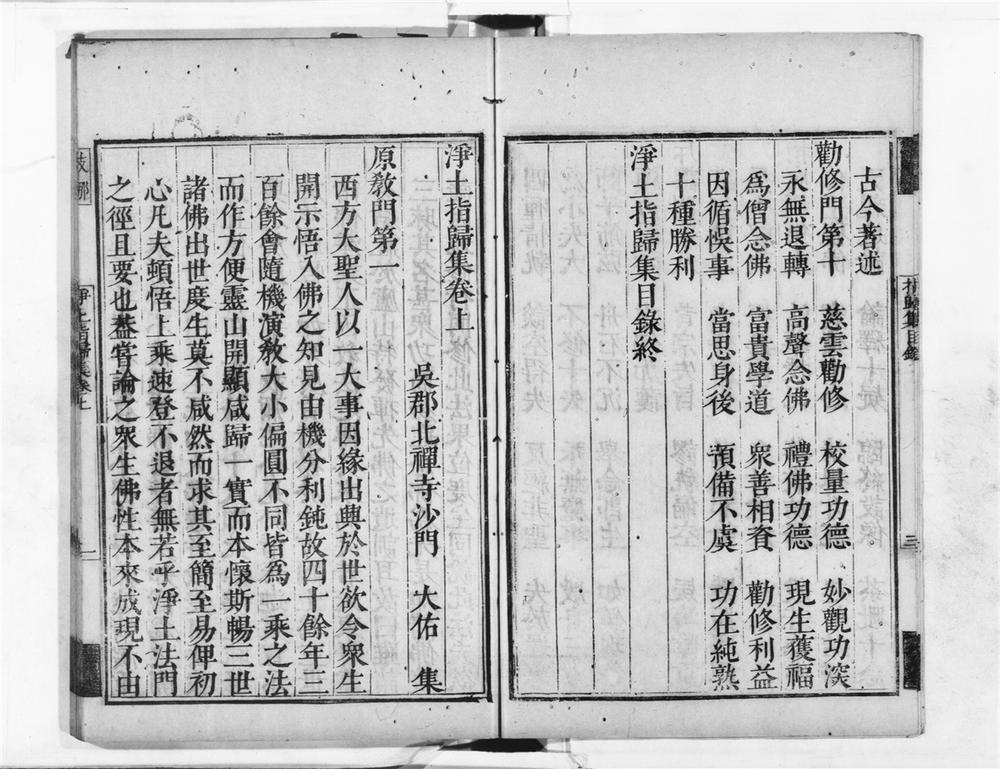 古今著述
勸修門第十　慈雲勸修　校量功德　妙觀功深
永無退轉　高聲念佛　禮佛功德　現生獲福
爲僧念佛　富貴學道　衆善相資　勸修利益
因循悞事　當思身後　預備不虞　功在純熟
十種勝利
淨土指歸集目錄終
三
淨土指歸集卷上
吳郡北禪寺沙門　大佑　集
原教門第一
西方大聖人以一大事因緣出興於世欲令衆生
開示悟入佛之知見由機分利鈍故四十餘年三
百餘會隨機演教大小偏圓不同皆爲一乘之法
而作方便靈山開顯咸歸一實而本懷斯暢三世
諸佛出世度生莫不咸然而求其至簡至易俾初
心凡夫頓悟上乘速登不退者無若乎淨土法門
之徑且要也葢嘗論之衆生佛性本來成現不由
淨土指歸集卷上
一